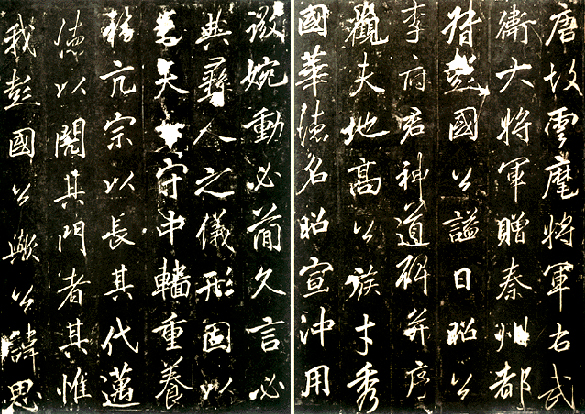 唐故雲麾將軍右武
衛大將軍贈秦州都
督彭國公謚曰昭公
李府君神道碑并序
觀夫地高公族才秀
國華德名昭宣沖用
微婉動必簡久言必
典彝人之儀形固以
夫守中轓重養
亢宗以長其代邁
德以閎其門者其惟
我彭國公歟公諱思